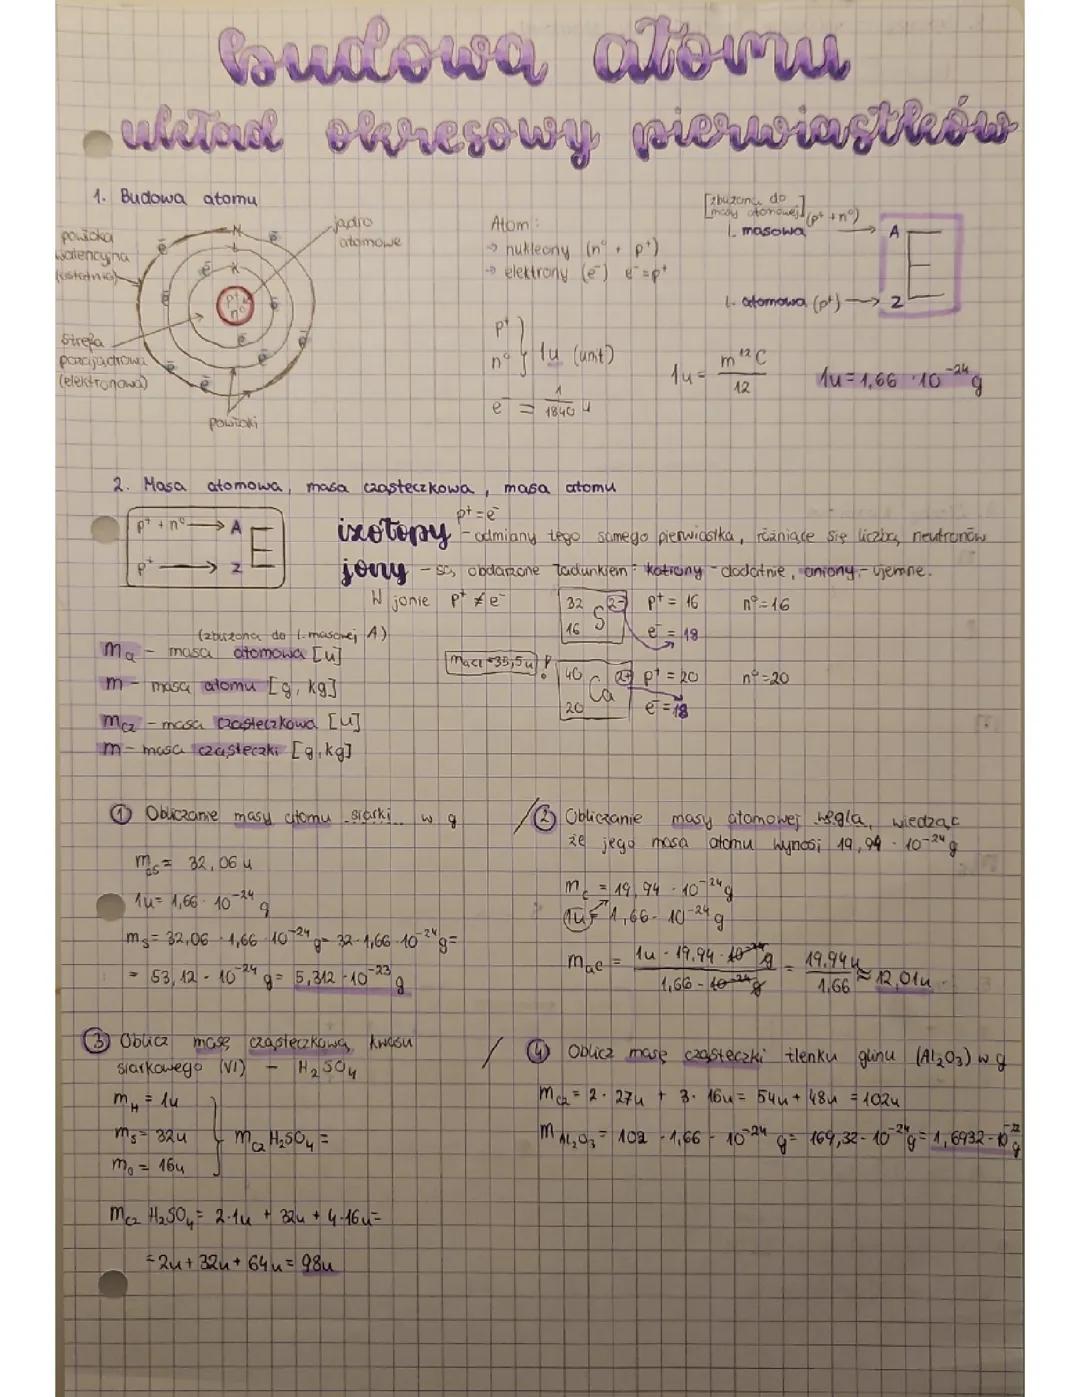 Budowa atomu
układ okresowy pierwiastków
1. Budowa atomu
powłoka
walencyjna
(ostatnia)
N
L
K
p⁺
n⁰
jądro
atomowe
strefa
pozajądrowa
(elektronowa)
powłoki
Atom:
→ nukleony (n⁰ + p⁺)
→ elektrony (e⁻) e⁻=p⁺
p⁺
n⁰ } 1u (unit)
e⁻ = 1/1840 u
[zbliżona do
masy atomowej]
l. masowa (p⁺+n⁰) → A
E
l. atomowa (p⁺) → Z
1u = m ¹²C / 12
1u = 1,66 · 10⁻²⁴ g
2. Masa atomowa, masa cząsteczkowa, masa atomu
p⁺ + n⁰ → A
E
p⁺ → Z
p⁺ = e⁻
izotopy - odmiany tego samego pierwiastka, różniące się liczbą neutronów
jony - są obdarzone ładunkiem: kationy - dodatnie, aniony - ujemne.
W jonie p⁺ ≠ e⁻
32 16 S 2- p⁺ = 16 n⁰ = 16
e⁻ = 18
(zbliżona do l. masowej A)
ma - masa atomowa [u]
m - masa atomu [g, kg]
mcz - masa cząsteczkowa [u]
m - masa cząsteczki [g, kg]
maCl = 35,5u !
40 20 Ca 2+ p⁺ = 20 n⁰ = 20
e⁻ = 18
① Obliczanie masy atomu siarki w g
maS = 32,06 u
1u = 1,66 · 10⁻²⁴ g
mS = 32,06 · 1,66 · 10⁻²⁴ g = 32 · 1,66 · 10⁻²⁴ g =
= 53,12 · 10⁻²⁴ g = 5,312 · 10⁻²³ g
② Obliczanie masy atomowej węgla, wiedząc
że jego masa atomu wynosi 19,94 · 10⁻²⁴ g
mc = 19,94 · 10⁻²⁴ g
1u = 1,66 · 10⁻²⁴ g
mac = 1u · 19,94 · 10⁻²⁴ g / 1,66 · 10⁻²⁴ g = 19,94u / 1,66 ≈ 12,01u
③ Oblicz masę cząsteczkową kwasu
siarkowego (VI) - H₂SO₄
mH = 1u
mS = 32u } mcz H₂SO₄ =
mO = 16u
mcz H₂SO₄ = 2·1u + 32u + 4·16u =
= 2u + 32u + 64u = 98u
④ Oblicz masę cząsteczki tlenku glinu (Al₂O₃) w g
mcz = 2 · 27u + 3 · 16u = 54u + 48u = 102u
m Al₂O₃ = 102 · 1,66 · 10⁻²⁴ g = 169,32 · 10⁻²⁴ g = 1,6932 · 10⁻²² g